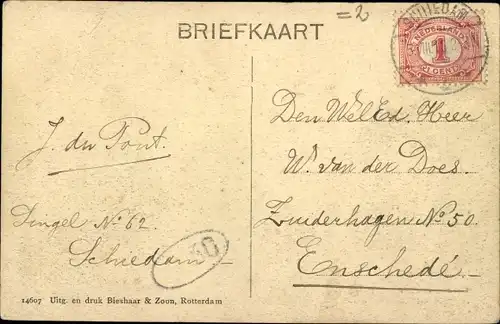 =2
BRIEFKAART
SCHIEDAM
NEDERLAND
1
CENT
J. du Pont.
Singel No. 62
Schiedam
Den WelEd. Heer
W. van der Does.
Zuiderhagen No. 50
Enschedé.
14607 Uitg. en druk Bieshaar & Zoon, Rotterdam